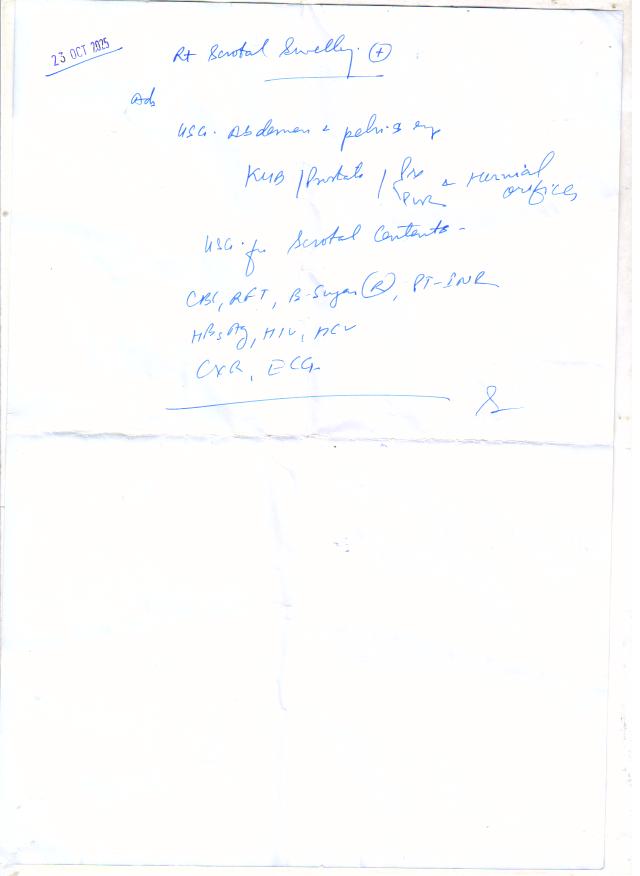 23 OCT 2025
Rt Scrotal Swelling. (+)
Adv
USG. Abdomen & pelvis
KUB / Prostate / Pre & Hernial orifices
PVR
USG. for Scrotal Contents -
CBC, RFT, B-Sugar (R), PT-INR
HBsAg, HIV, HCV
CXR, ECG